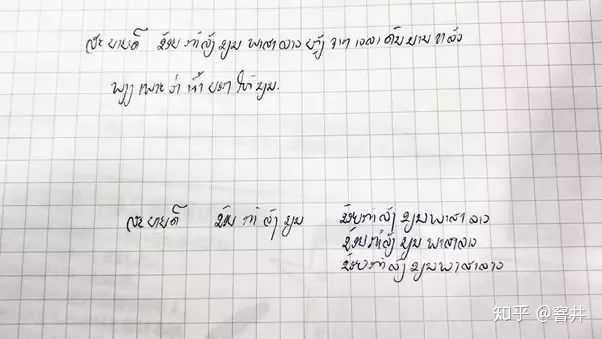 ສະບາຍດີ ຂ້ອຍ ກຳລັງ ຂຽນ ພາສາລາວ ຈາກ ເວລາ ດົນນານ
ພຽງ ເພາະວ່າ ໃຫ້ ຂຽນ.
ສະບາຍດີ ຂ້ອຍ ກຳລັງ ຂຽນ ຂ້ອຍກຳລັງ ຂຽນພາສາ ລາວ
ຂ້ອຍກຳລັງ ຂຽນ ພາສາລາວ
ຂ້ອຍກຳລັງ ຂຽນພາສາລາວ
知乎 @睿井